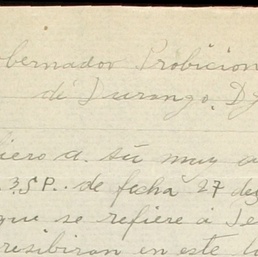 obernador Probicion
de Durango. D
iero a. su muy a
.3.SP. de fecha 27 de
que se refiere a Te
resibiran en este